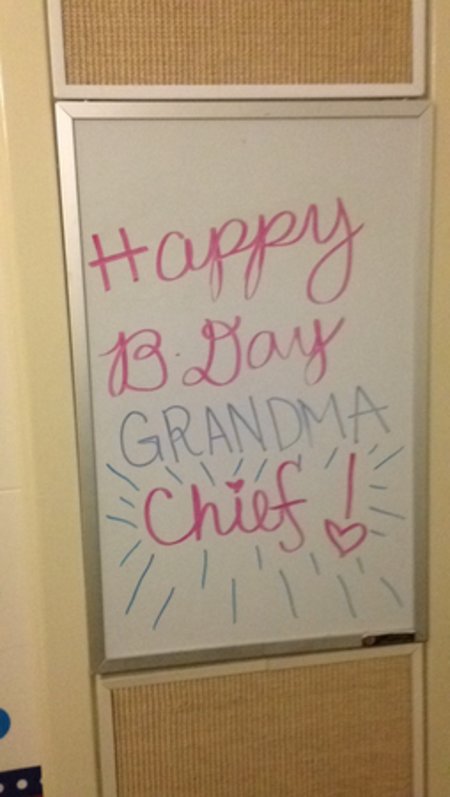 Happy
B.Day
GRANDMA
Chief!